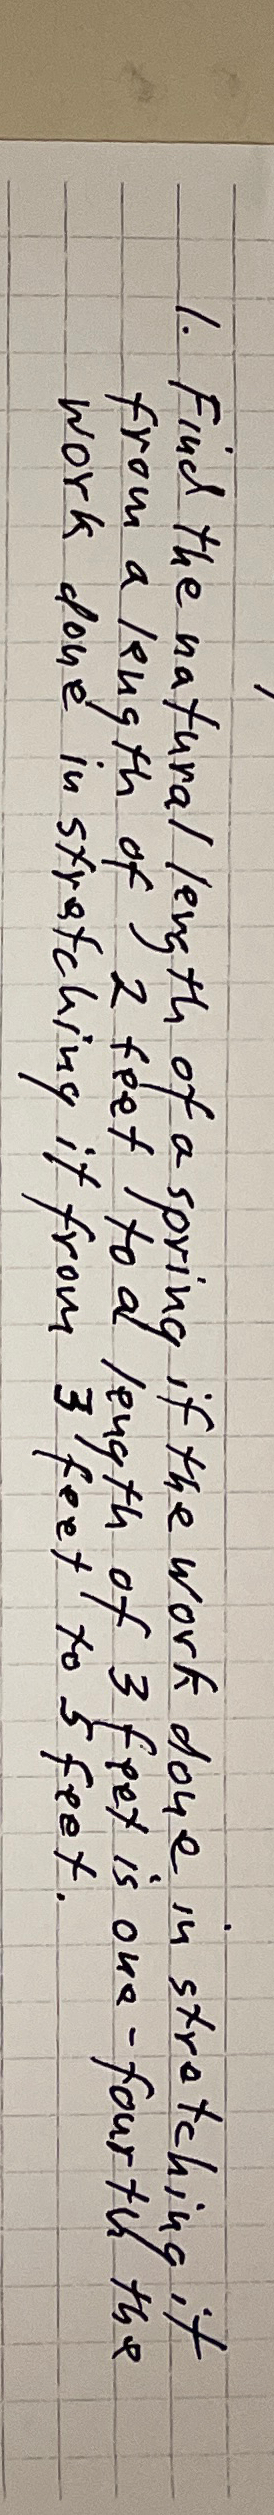 1. Find the natural length of a spring if the work done in stretching it
from a length of 2 feet to a length of 3 feet is one-fourth the
work done in stretching it from 3 feet to 5 feet.